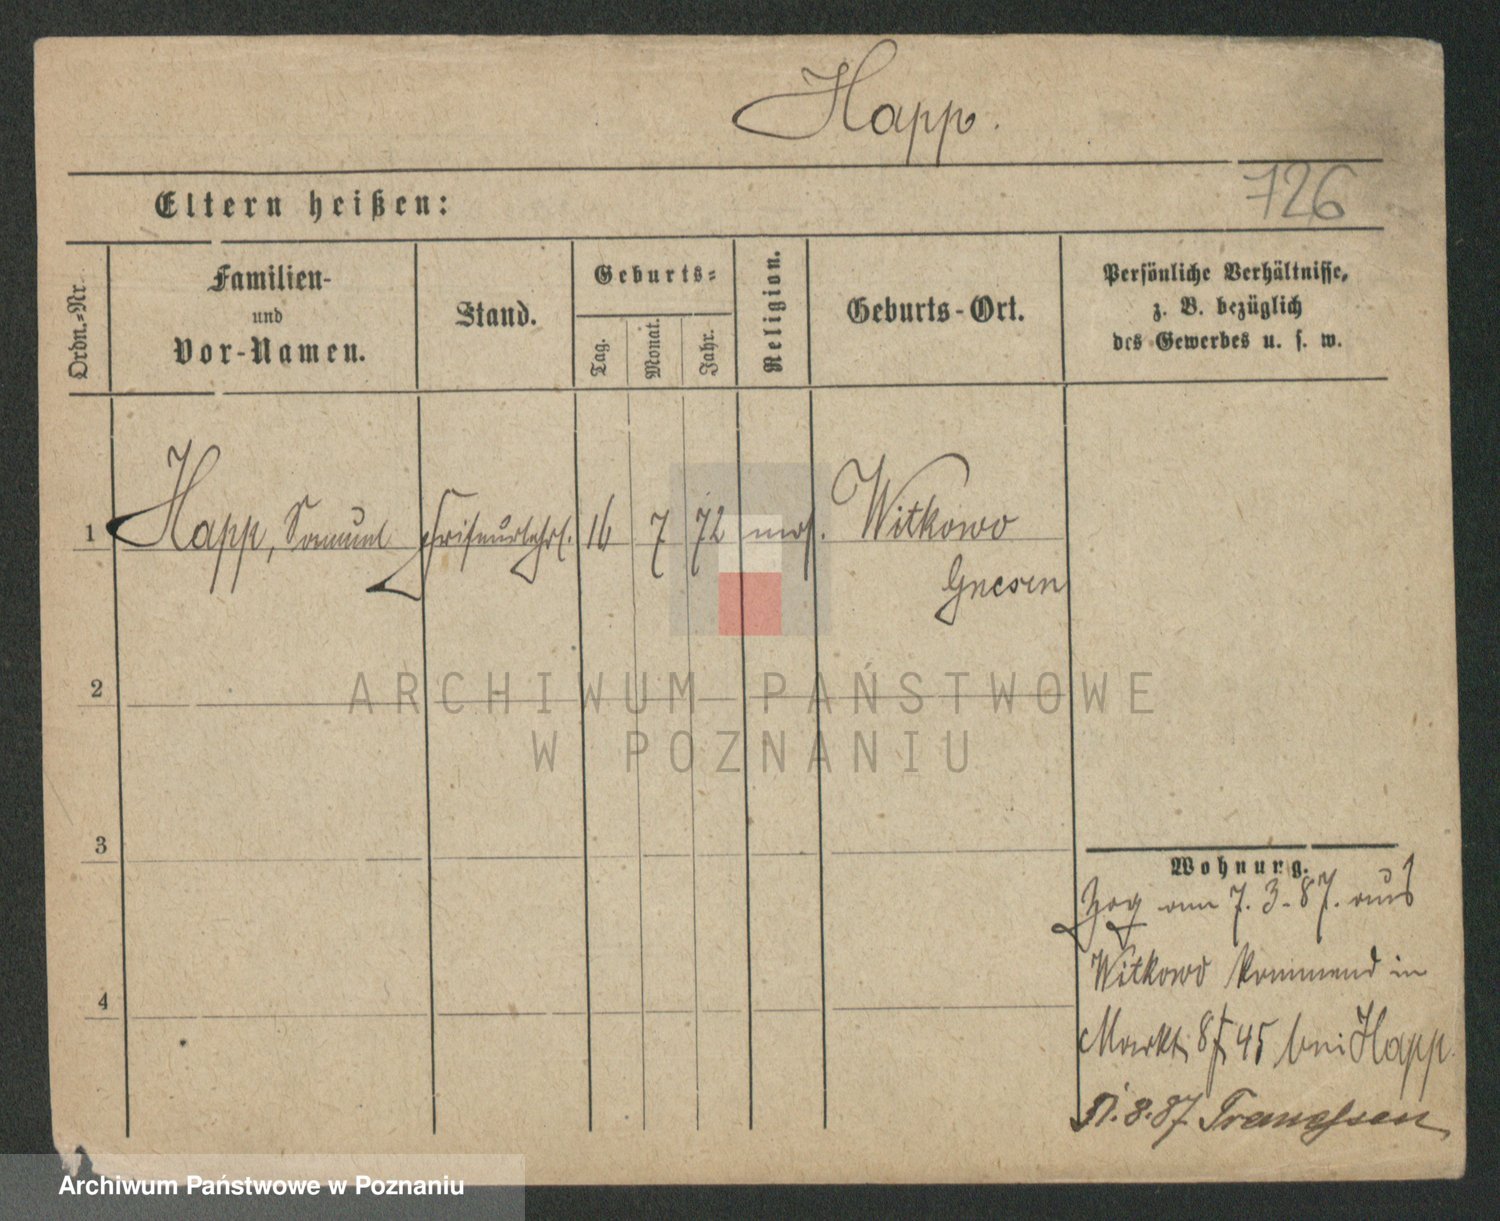 Happ.
726
Eltern heißen:
Ordn.-Nr.
Familien-
und
Vor-Namen.
Stand.
Geburts-
Tag.
Monat.
Jahr.
Religion.
Geburts-Ort.
Persönliche Verhältnisse,
z. B. bezüglich
des Gewerbes u. s. w.
1 Happ, Samuel Friseurlehrl. 16 7 72 mos. Witkowo
Gnesen
2
3
4
Wohnung.
Zog am 7. 3. 87. aus
Witkowo kommend in
Markt 45 bei Happ.
3. 87
ARCHIWUM PAŃSTWOWE
W POZNANIU
Archiwum Państwowe w Poznaniu